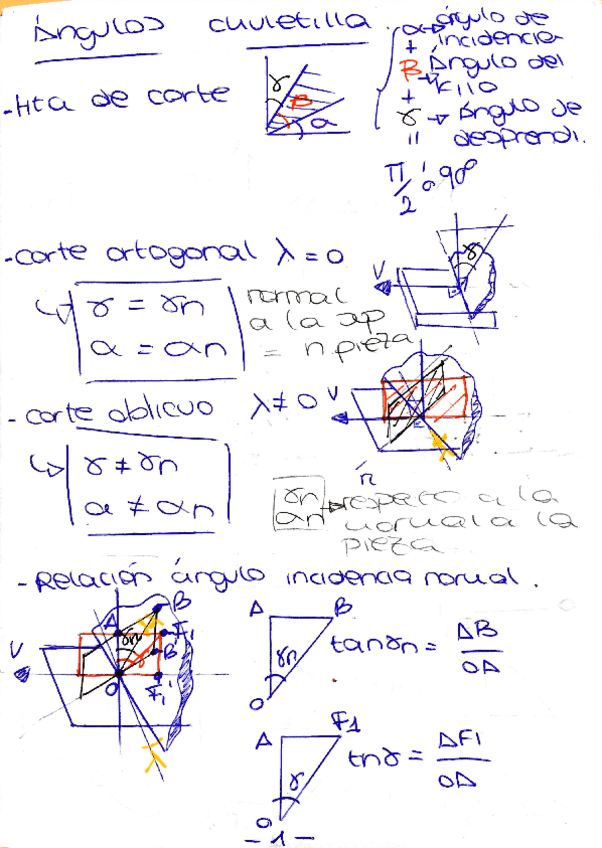 Ángulos chuletilla
α → ángulo de
incidencia
+
β → Ángulo del
filo
+
γ → Ángulo de
desprendi.
=
π/2 ó 90º
- Hta de corte
γ
β
α
- corte ortogonal λ = 0
γ = γn
α = αn
normal
a la sp
= n pieza
V
γ
- corte oblicuo λ ≠ 0
γ ≠ γn
α ≠ αn
V
n
γn
αn
→ respecto a la
normal a la
pieza
- Relación ángulo incidencia normal.
V
A
B
γn
F1
B'
O
F1'
A B
γn
O
tanγn = AB / OA
A F1
γ
O
tnγ = AF1 / OA
- 1 -